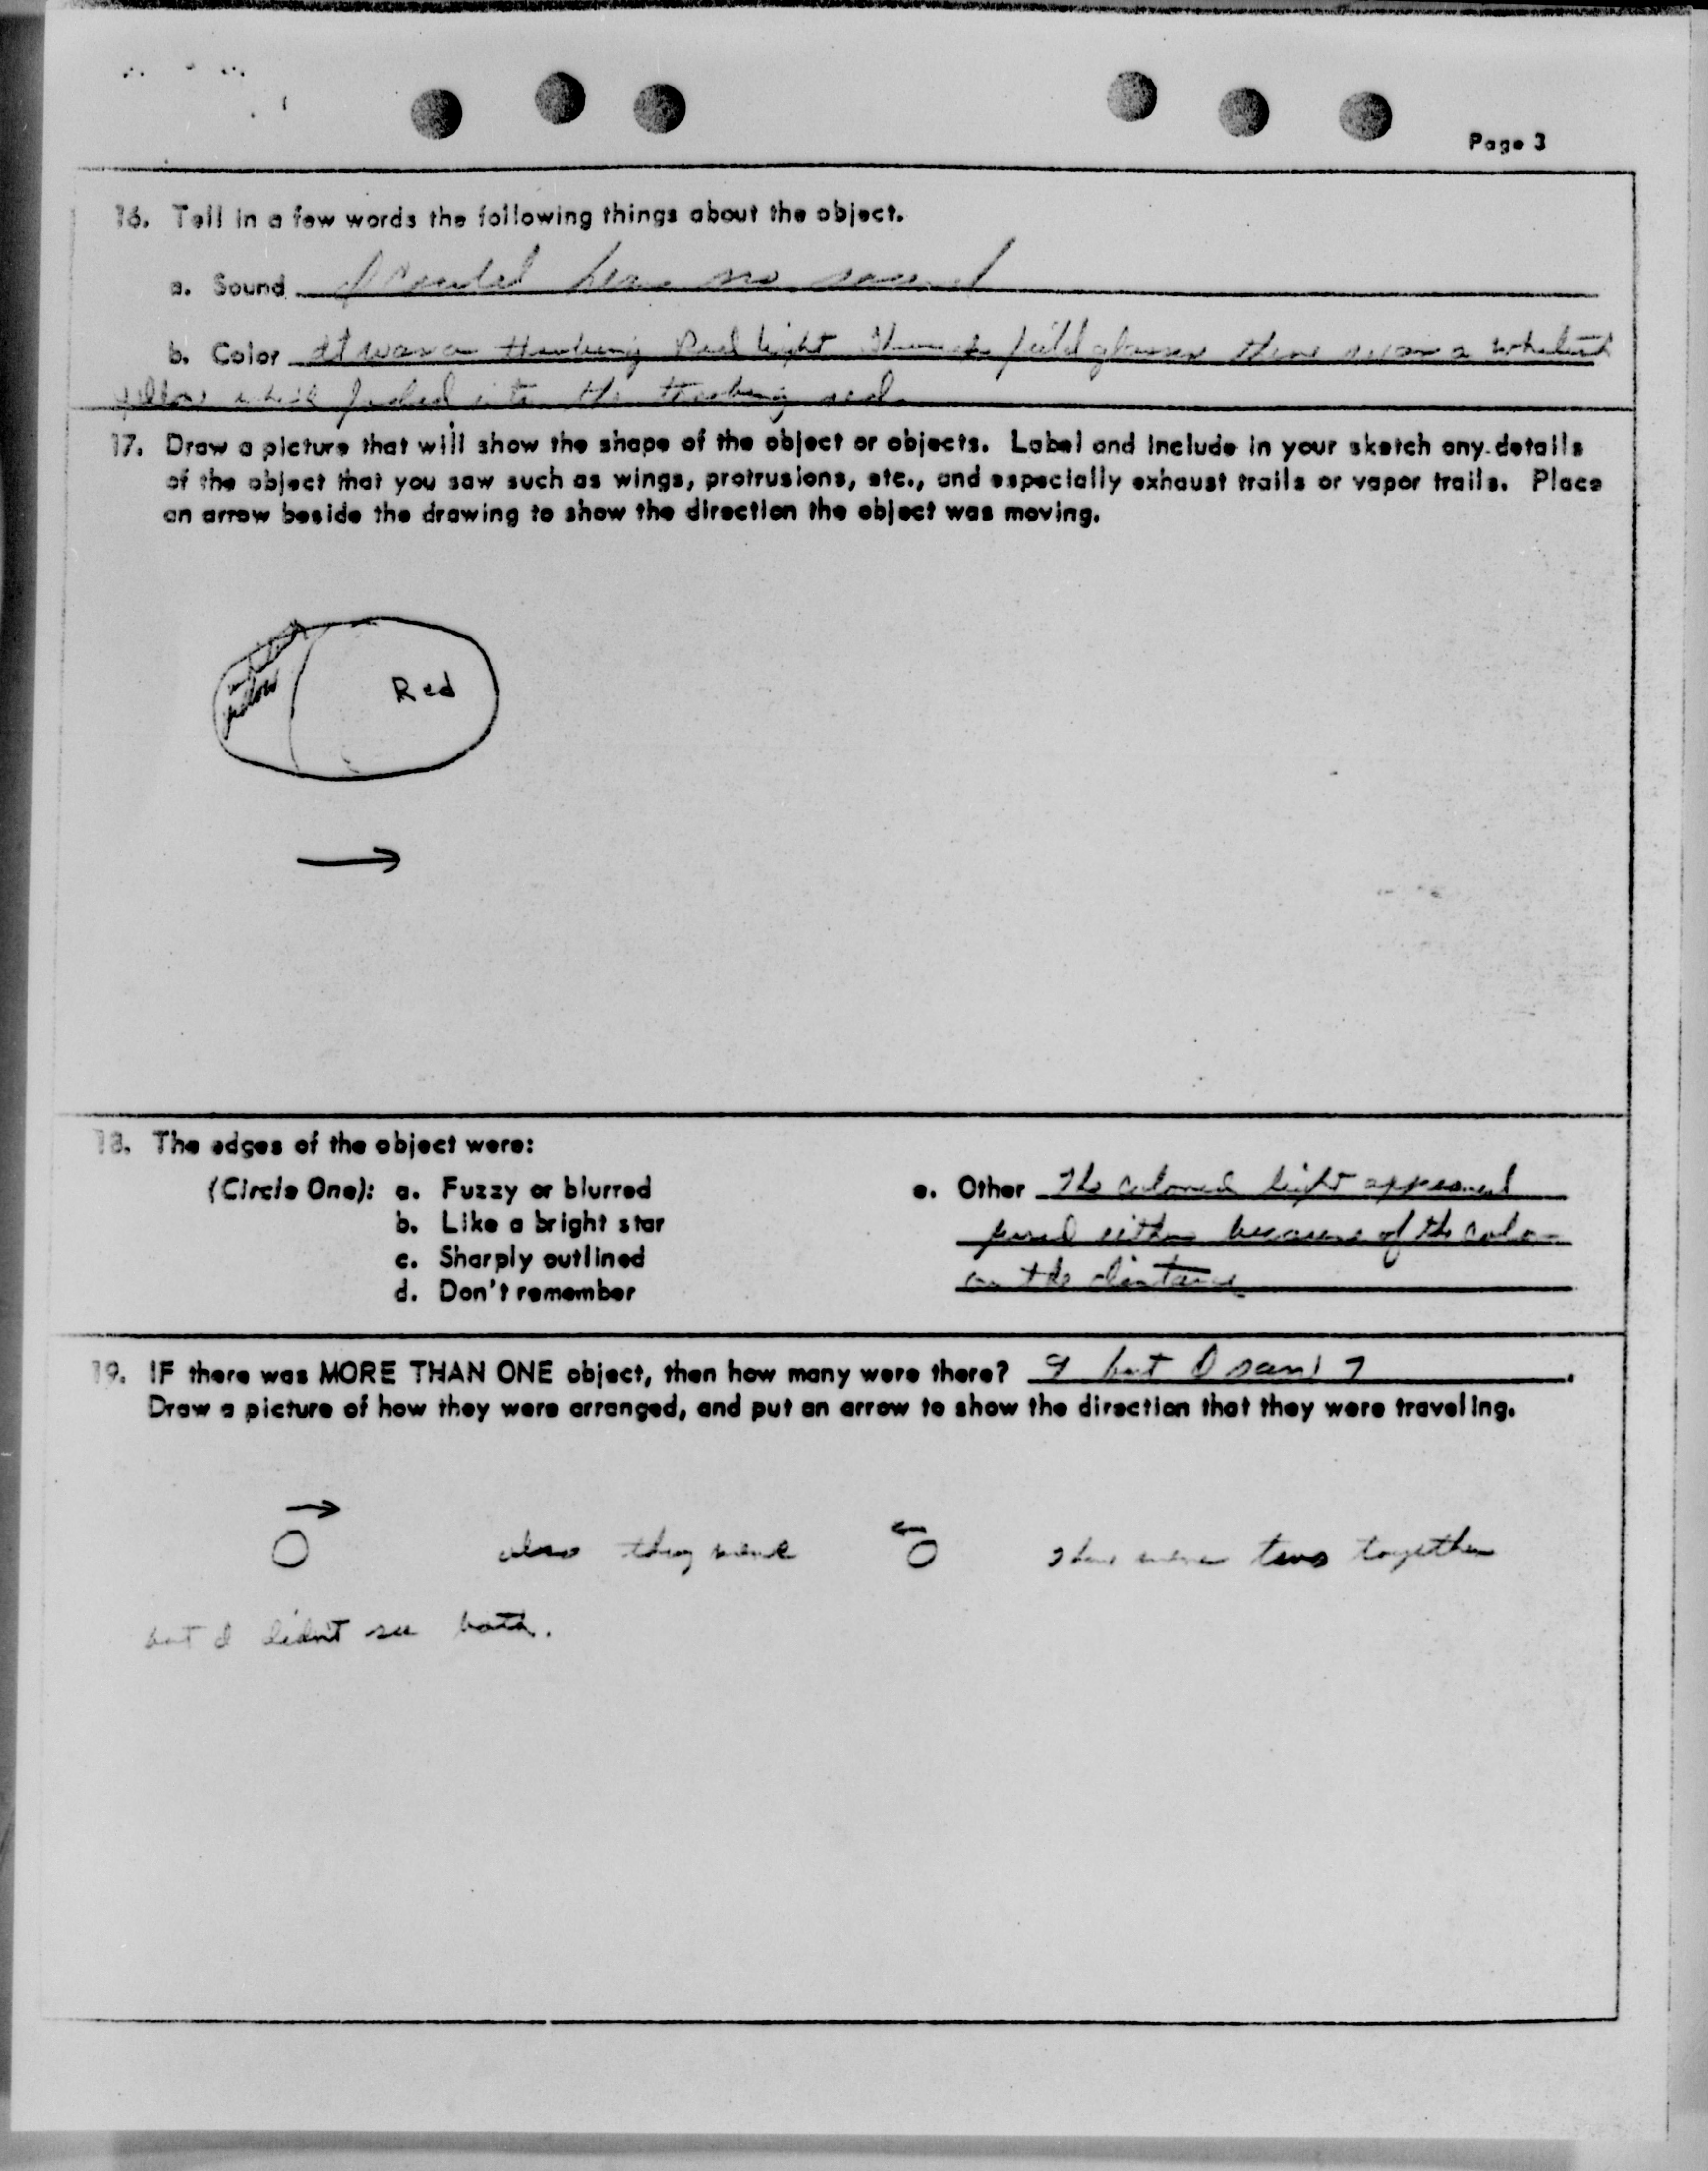 Page 3
16. Tell in a few words the following things about the object.
a. Sound I could hear no sound
b. Color It was a throbing Red light Through field glasses there was a whiteish
yellow which faded into the throbing red.
17. Draw a picture that will show the shape of the object or objects. Label and include in your sketch any details
of the object that you saw such as wings, protrusions, etc., and especially exhaust trails or vapor trails. Place
an arrow beside the drawing to show the direction the object was moving.
yellow
Red
18. The edges of the object were:
(Circle One): a. Fuzzy or blurred
b. Like a bright star
c. Sharply outlined
d. Don't remember
e. Other The colored light appeared
either because of the color
or the distance
19. IF there was MORE THAN ONE object, then how many were there? 9 but I saw 7.
Draw a picture of how they were arranged, and put an arrow to show the direction that they were traveling.
also they were
there were two together
but I didn't see both.